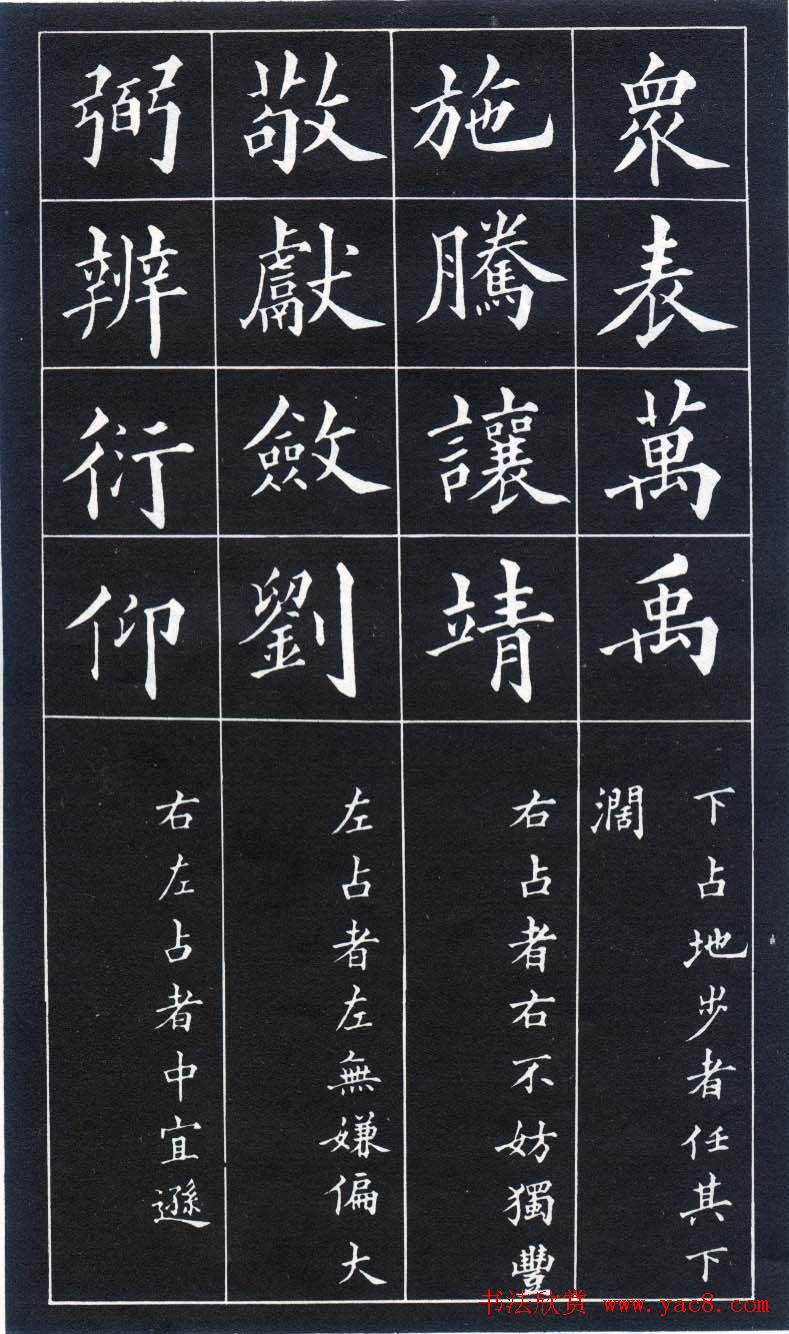 眾表萬禹
下占地步者任其下
濶
施騰讓靖
右占者右不妨獨豐
敬獻斂劉
左占者左無嫌偏大
弼辨衍仰
右左占者中宜遜
书法欣赏 www.yac8.com